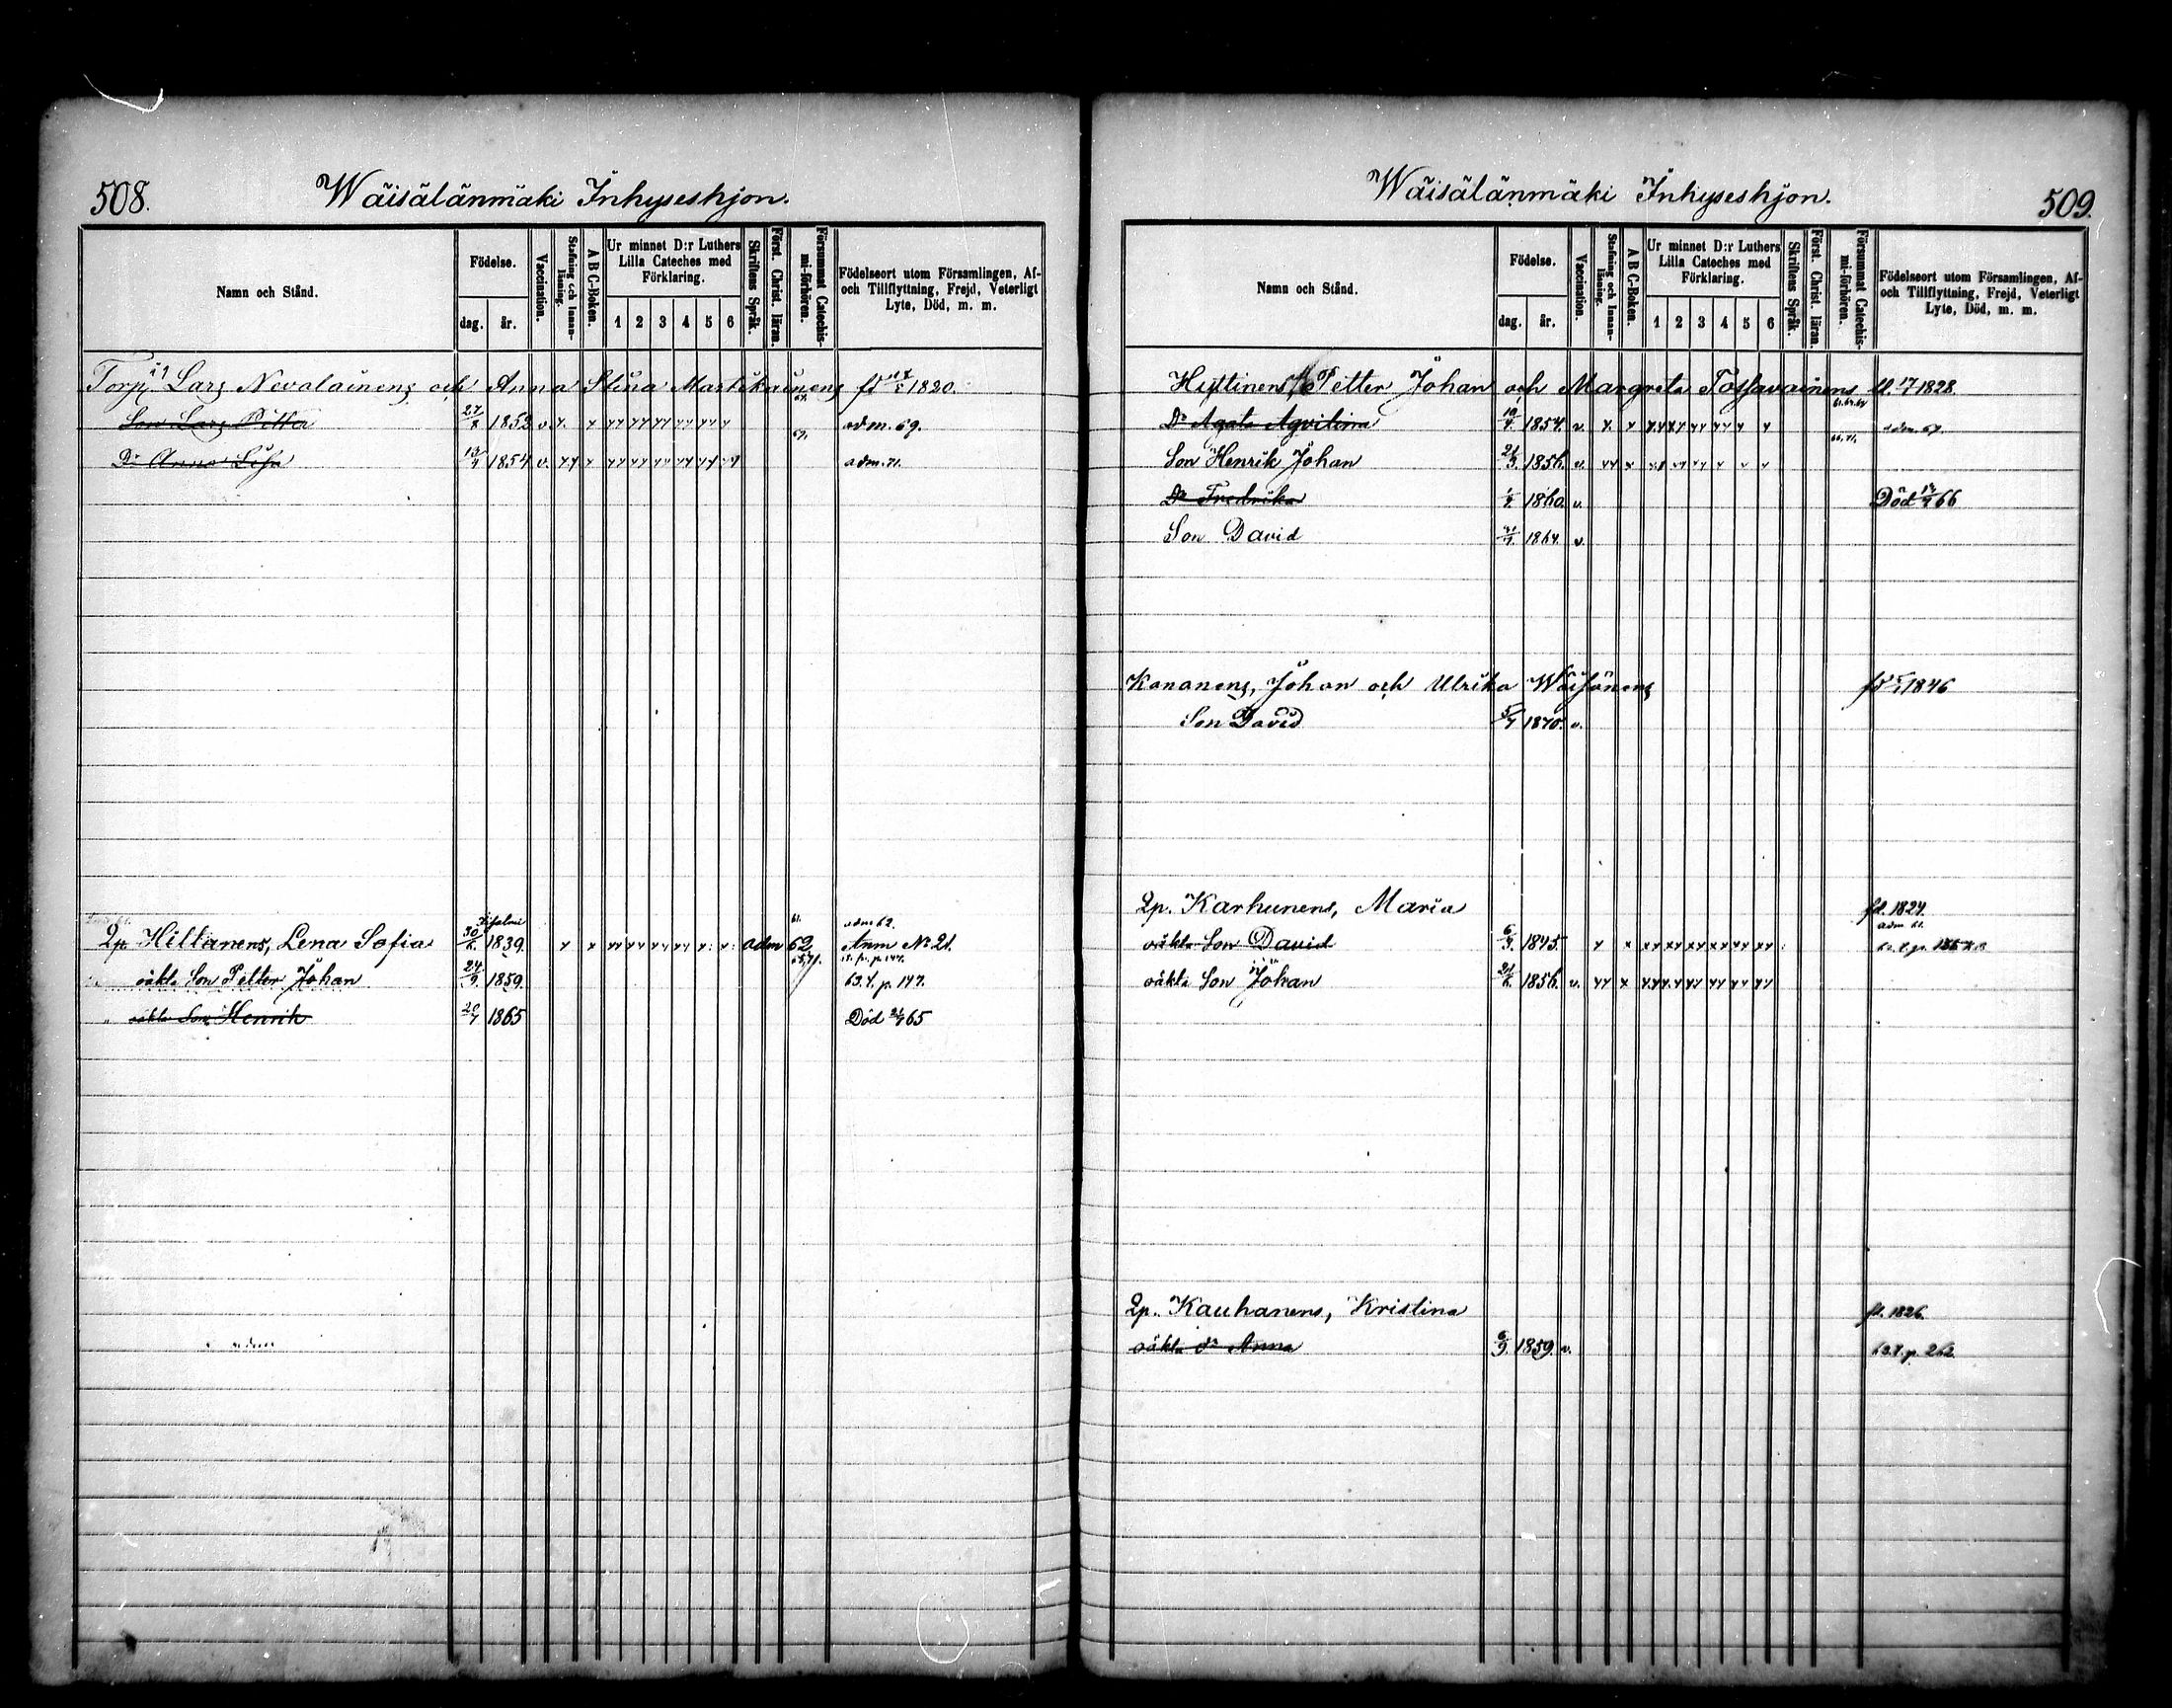 508.
Wäisälänmäki Inhyseshjon.
Namn och Stånd.
Födelse.
dag.
år.
Vaccination.
Stafning och Innan-läsning.
A B C-Boken.
Ur minnet D:r Luthers
Lilla Cateches med
Förklaring.
1 2 3 4 5 6
Skriftens Språk.
Först. Christ. läran.
Försummat Catechis-mi-förhören.
Födelseort utom Församlingen, Af-
och Tillflyttning, Frejd, Veterligt
Lyte, Död, m. m.
Lars Nevalainens och Anna Stina Martikainens 1820.
Son Lars Petter 27/8 1852 v. adm. 69.
Dr Anna Lisa 1854 v. adm. 71.
61. adm 62.
Hiltanens, Lena Sofia 30/6 1839. adm 62 Anm No 21.
oäkta Son Petter Johan 24/9 1859. 63.f. p. 147.
oäkta Son Henrik 1865 Död 65
509.
Wäisälänmäki Inhyseshjon.
Namn och Stånd.
Födelse.
dag.
år.
Vaccination.
Stafning och Innan-läsning.
A B C-Boken.
Ur minnet D:r Luthers
Lilla Cateches med
Förklaring.
1 2 3 4 5 6
Skriftens Språk.
Först. Christ. läran.
Försummat Catechis-mi-förhören.
Födelseort utom Församlingen, Af-
och Tillflyttning, Frejd, Veterligt
Lyte, Död, m. m.
Hyttinens, Petter Johan och Margreta Tossavainens 1828.
Dr Agata Aqvilina 1854. v.
Son Henrik Johan 21/3. 1856. v.
Dr Fredrika 1860. v. Död 66
Son David 1864. v.
Kananens, Johan och Ulrika Wäisänens 1846
Son David 5/7 1870. v.
Karhunens, Maria fd. 1824.
adm 61.
oäkta Son David 6/3. 1845.
oäkta Son Johan 1856. v.
Kauhanens, Kristina fd. 1826.
oäkta dr Anna 6/9. 1859. v. 63.f. p. 262.